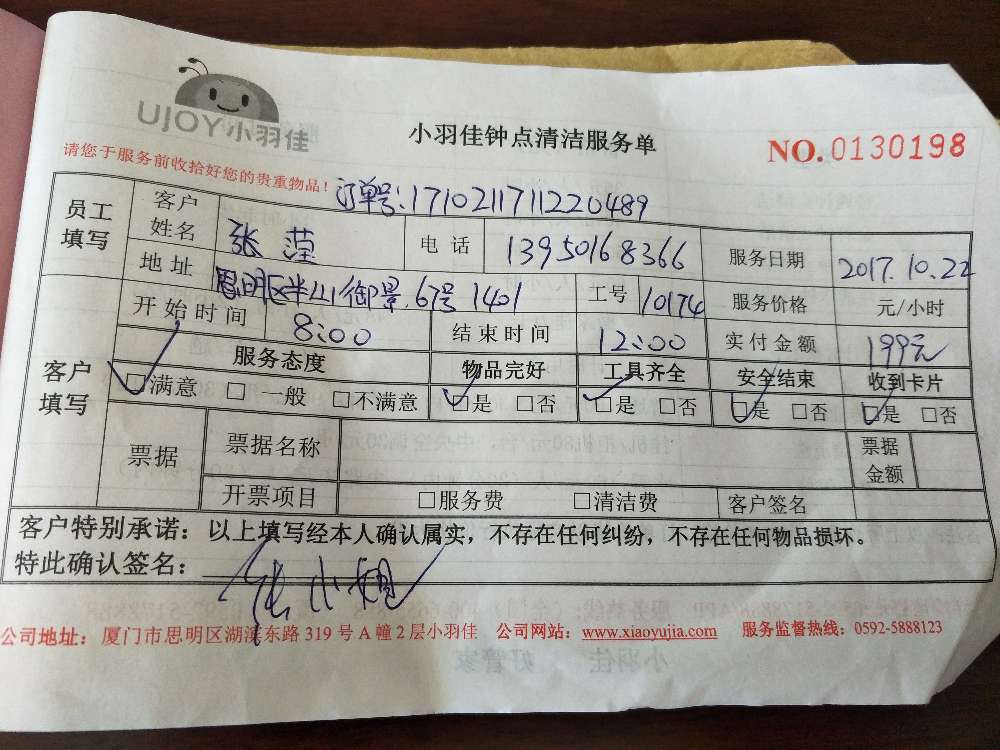 UJOY小羽佳
小羽佳钟点清洁服务单
NO.0130198
请您于服务前收拾好您的贵重物品！
订单号:1710211711220489
员工填写 客户姓名 张萍 电话 13950168366 服务日期 2017.10.22
地址 思明区半山御景.67号1401 工号 10174 服务价格 元/小时
开始时间 8:00 结束时间 12:00 实付金额 199元
客户填写 服务态度 物品完好 工具齐全 安全结束 收到卡片
□满意 □一般 □不满意 □是 □否 □是 □否 □是 □否 □是 □否
票据 票据名称 票据金额
开票项目 □服务费 □清洁费 客户签名
客户特别承诺：以上填写经本人确认属实，不存在任何纠纷，不存在任何物品损坏。
特此确认签名： 张小姐
公司地址：厦门市思明区湖滨东路319号A幢2层小羽佳 公司网站：www.xiaoyujia.com 服务监督热线：0592-5888123